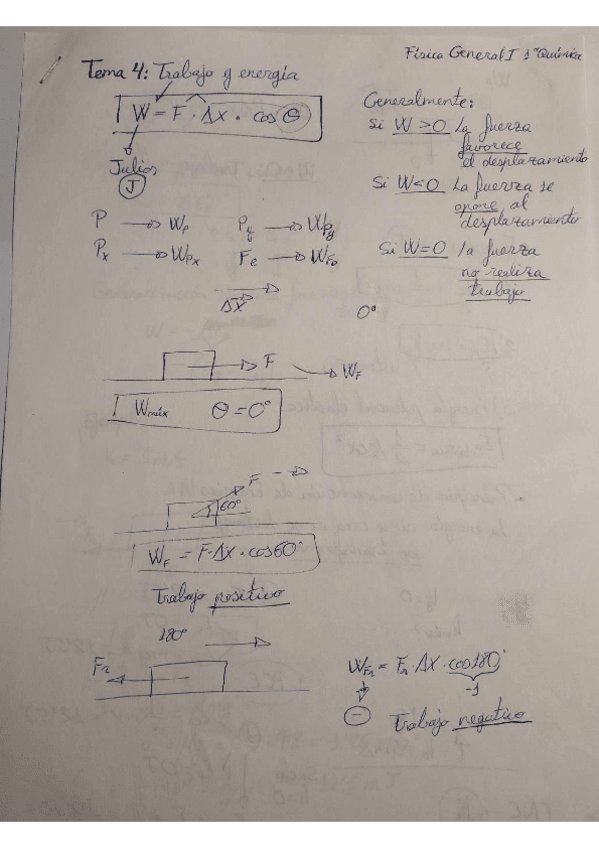 Física General I 1º Química
Tema 4: Trabajo y energía
W = F · Δx · cos θ
Julios
J
Generalmente:
Si W > 0 La fuerza
favorece
el desplazamiento
Si W < 0 La fuerza se
opone al
desplazamiento
Si W = 0 la fuerza
no realiza
trabajo
P → Wp Py → Wpy
Px → Wpx Fe → WFe
Δx
0º
F → WF
Wmáx θ = 0º
F
60º
WF = F · Δx · cos 60º
Trabajo positivo
180º
Fr
WFr = Fr · Δx · cos 180º
-1
−
Trabajo negativo